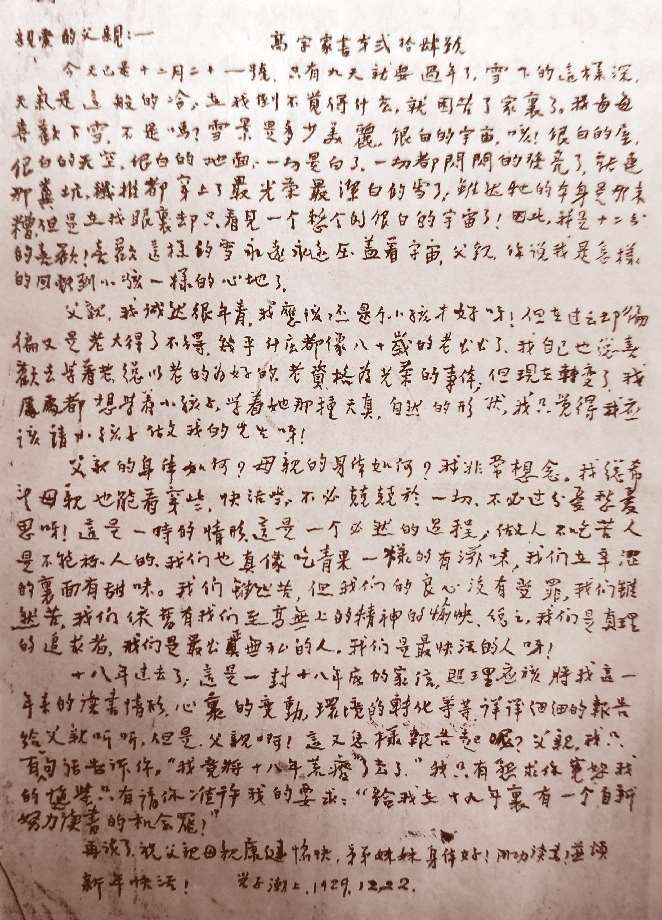 親愛的父親：— 高字家書第貳拾肆號
今天已是十二月二十一號，只有九天就要過年了，雪下的這樣深，
天氣是這般的冷，在我倒不覺得什么，就困苦了家裏了。我每每
喜歡下雪，不是嗎？雪景是多少美麗，很白的宇宙，咳！很白的屋，
很白的天空，很白的地面，一切是白了，一切都閃閃的發亮了，就連
那糞坑，都穿上了最光榮最潔白的雪了；雖然牠的本身是那末
糟，但是在我眼裏却只看見一个整个的很白的宇宙了！因此，我是十二分
的喜歡！喜歡這樣的雪永遠永遠压盖着宇宙，父親，你说我是怎樣
的回到小孩一樣的心地了。
父親，我诚然很年青，我應该还是个小孩才好呀！但在过去却偏
偏又是老大得了不得，幾乎什庅都像八十歲的老出出了，我自己也总喜
歡去学着老，总以老的为好的，老資格为光荣的事体，但现在轉变了，我
都想学着小孩子，学着她那種天真，自然的形狀，我只觉得我应
该請小孩子做我的先生呀！
父親的身体如何？母親的身体如何？我非常想念。我总希
望母親也能看穿些，快活些，不必兢兢於一切，不必过分
思呀！這是一時的情形，這是一个必然的过程，做人不吃苦人
是不能称人的，我们也真像吃青果一樣的有滋味，我们在辛澀
的裏面有甜味。我们雖然苦，但我们的良心没有受罪，我们雖
然苦，我们依舊有我们至高無上的精神的愉快，总之，我们是真理
的追求者，我们是最公無私的人，我们是最快活的人呀！
十八年过去了，這是一封十八年底的家信，照理应该將我這一
年来的读書情形，心裏的变動，環境的轉化等等，详详细细的報告
給父親听听，但是，父親啊！這又怎樣報告起呢？父親，我只
有句话告诉你，“我竟將十八年荒廢了去了。”我只有懇求你寬恕我
的，只有請你准許我的要求：“給我在十九年裏有一个自新
努力读書的机会罷！”
再谈了，祝父親母親康健愉快，弟妹妹身体好！用功读書！並頌
新年快活！ 上，1929，12，22．